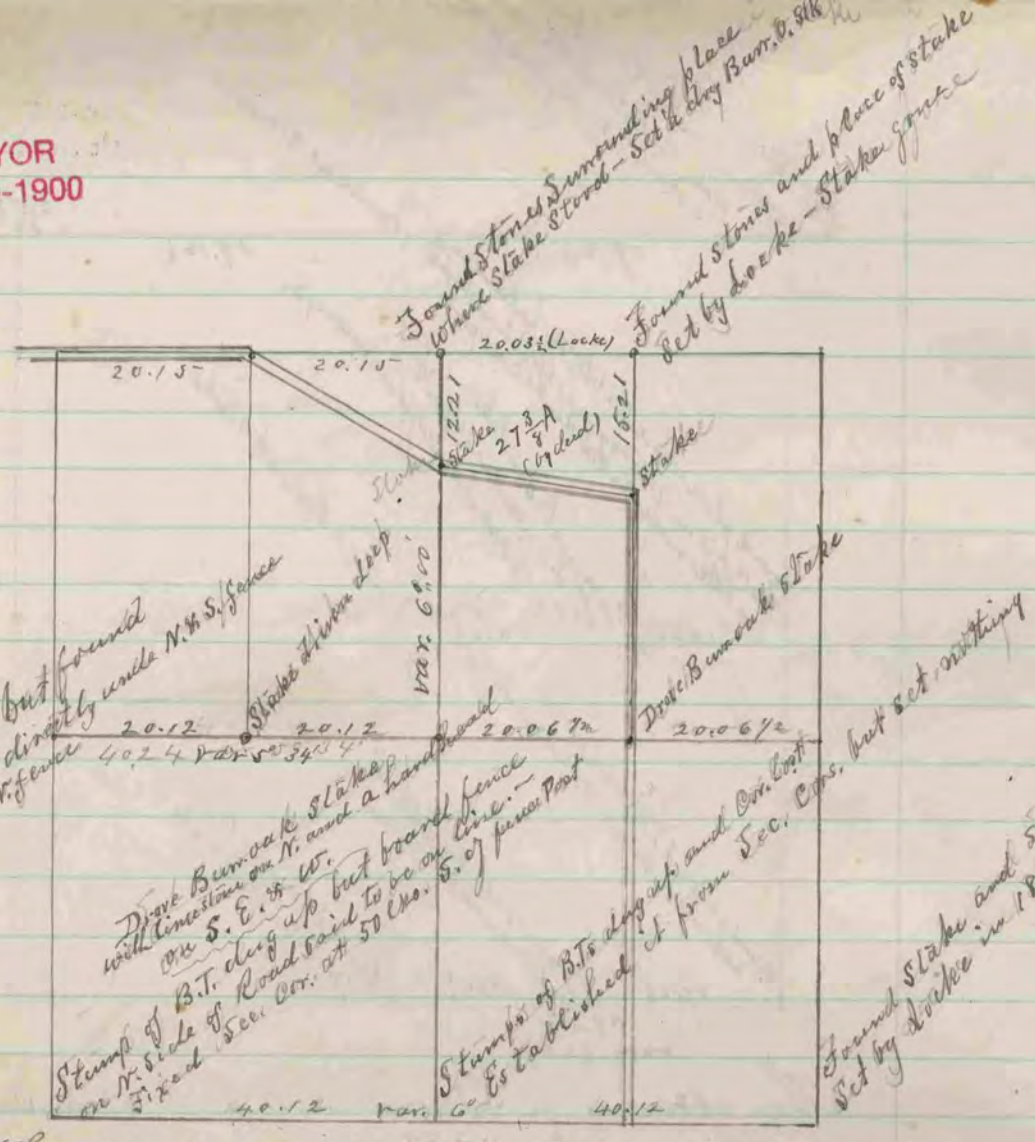 YOR
-1900
Found Stones Surrounding place
where Stake Stood - Set a dry Burr. O. Stk
Found stones and place of stake
Set by Locke - Stake gone
20.15
20.15
20.03½ (Locke)
12.21
15.21
Stake
27⅜ A
(by deed)
Stake
Stake driven deep
var. 6°.00'
Drove Burr oak stake
but found
directly under N. & S. fence
N. fence
20.12
20.12
20.06½
20.06½
40.24 var 5° 34'
Drove Burr oak Stake
with limestone on N. and a hardhead
on S. E. & W.
Stump of B.T. dug up but board fence
on N. side of Road said to be on line. -
Fixed Sec. Cor. at 50 lks. S. of fence Post
Stumps of B.Ts dug up and Cor. lost
Established it from Sec. Cors. but set nothing
Found Stake and
Set by Locke in 18
40.12
var. 6°
40.12